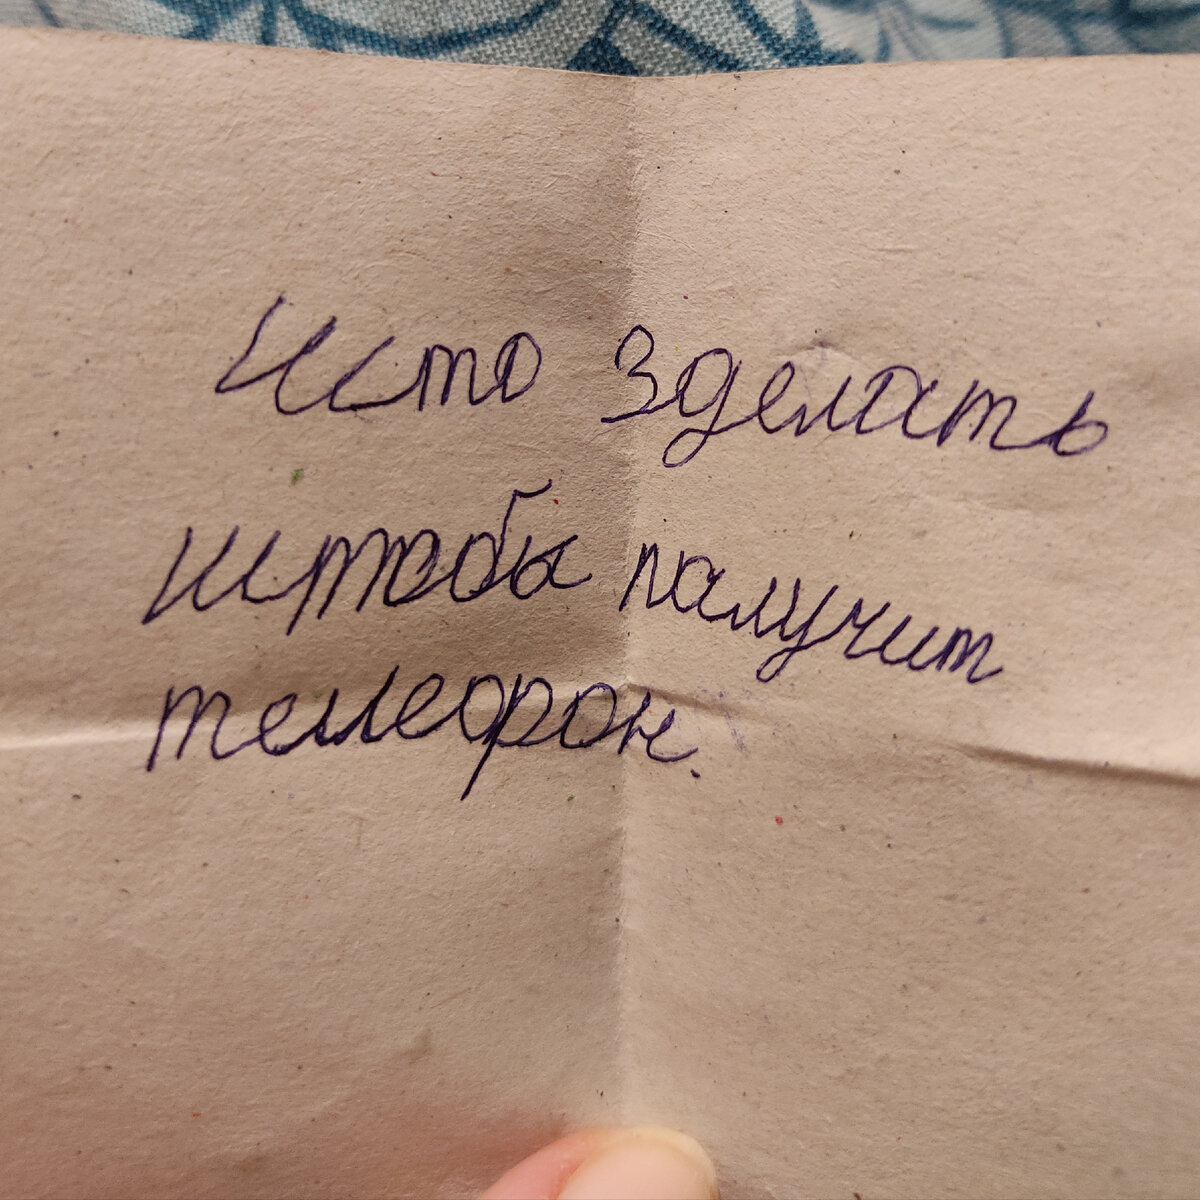 Што зделать
штобы палучит
телефон.